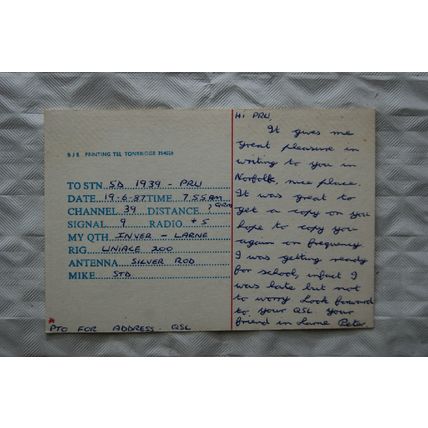 BJR PRINTING TEL TONBRIDGE
TO STN. SD 1939 - PRU
DATE 19-6-87 TIME 7.55AM
CHANNEL 39 DISTANCE ? QRM
SIGNAL 9 RADIO +5
MY QTH INVER - LARNE
RIG UNIACE 200
ANTENNA SILVER ROD
MIKE STD
PTO FOR ADDRESS. QSL
Hi PRU,
It gives me
great pleasure in
writing to you in
Norfolk, nice place.
It was great to
get a copy on you
hope to copy you
again on frequency
I was getting ready
for school, infact I
was late but not
to worry Look forward
to, your QSL your
friend in Larne Peter